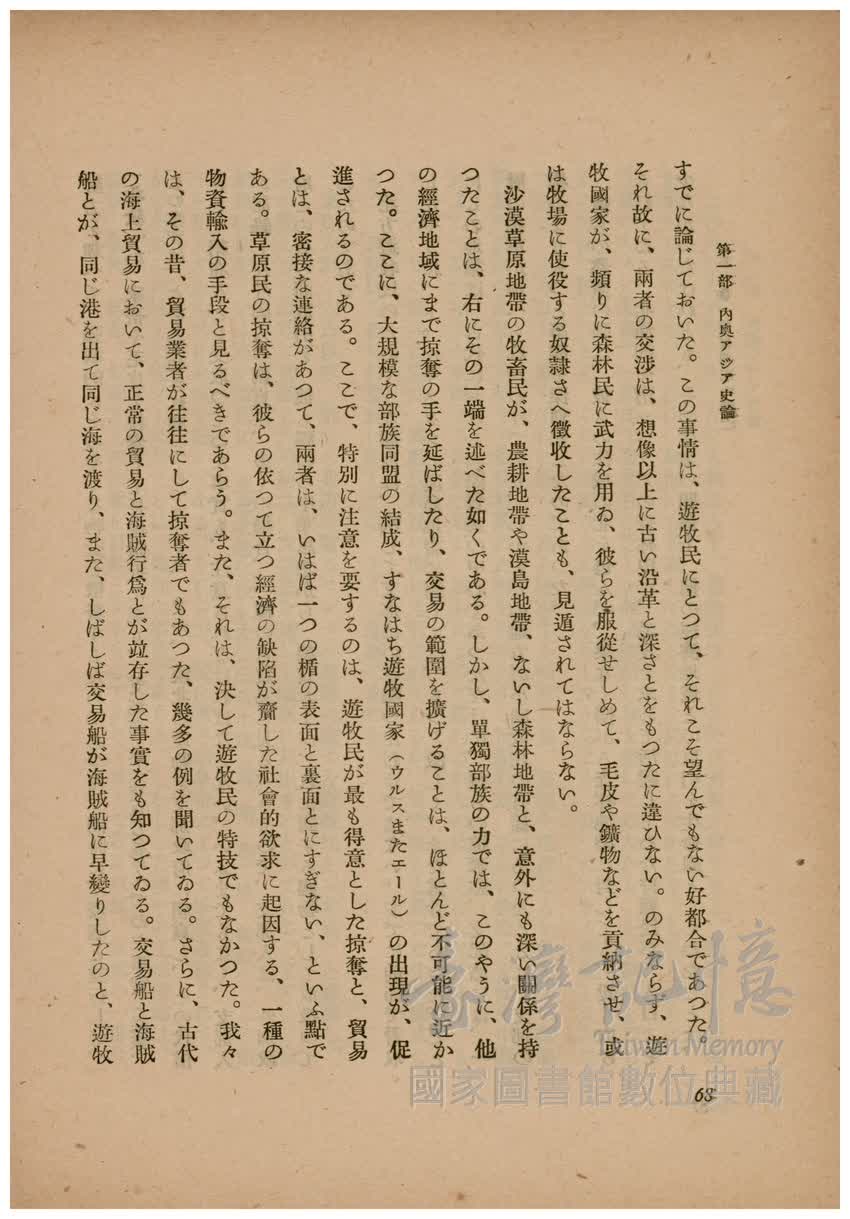 第一部 內奧アジア史論
すでに論じておいた。この事情は、遊牧民にとつて、それこそ望んでもない好都合であつた。
それ故に、兩者の交渉は、想像以上に古い沿革と深さとをもつたに違ひない。のみならず、遊
牧國家が、頻りに森林民に武力を用ゐ、彼らを服從せしめて、毛皮や鑛物などを貢納させ、或
は牧場に使役する奴隷さへ徵收したことも、見遁されてはならない。
沙漠草原地帶の牧畜民が、農耕地帶や漠島地帶、ないし森林地帶と、意外にも深い關係を持
つたことは、右にその一端を述べた如くである。しかし、單獨部族の力では、このやうに、他
の經濟地域にまで掠奪の手を延ばしたり、交易の範圍を擴げることは、ほとんど不可能に近か
つた。ここに、大規模な部族同盟の結成、すなはち遊牧國家（ウルスまたエール）の出現が、促
進されるのである。ここで、特別に注意を要するのは、遊牧民が最も得意とした掠奪と、貿易
とは、密接な連絡があつて、兩者は、いはば一つの楯の表面と裏面とにすぎない、といふ點で
ある。草原民の掠奪は、彼らの依つて立つ經濟の缺陷が齎した社會的欲求に起因する、一種の
物資輸入の手段と見るべきであらう。また、それは、決して遊牧民の特技でもなかつた。我々
は、その昔、貿易業者が往往にして掠奪者でもあつた、幾多の例を聞いてゐる。さらに、古代
の海上貿易において、正常の貿易と海賊行爲とが竝存した事實をも知つてゐる。交易船と海賊
船とが、同じ港を出て同じ海を渡り、また、しばしば交易船が海賊船に早變りしたのと、遊牧
68
臺灣記憶
Taiwan Memory
國家圖書館數位典藏